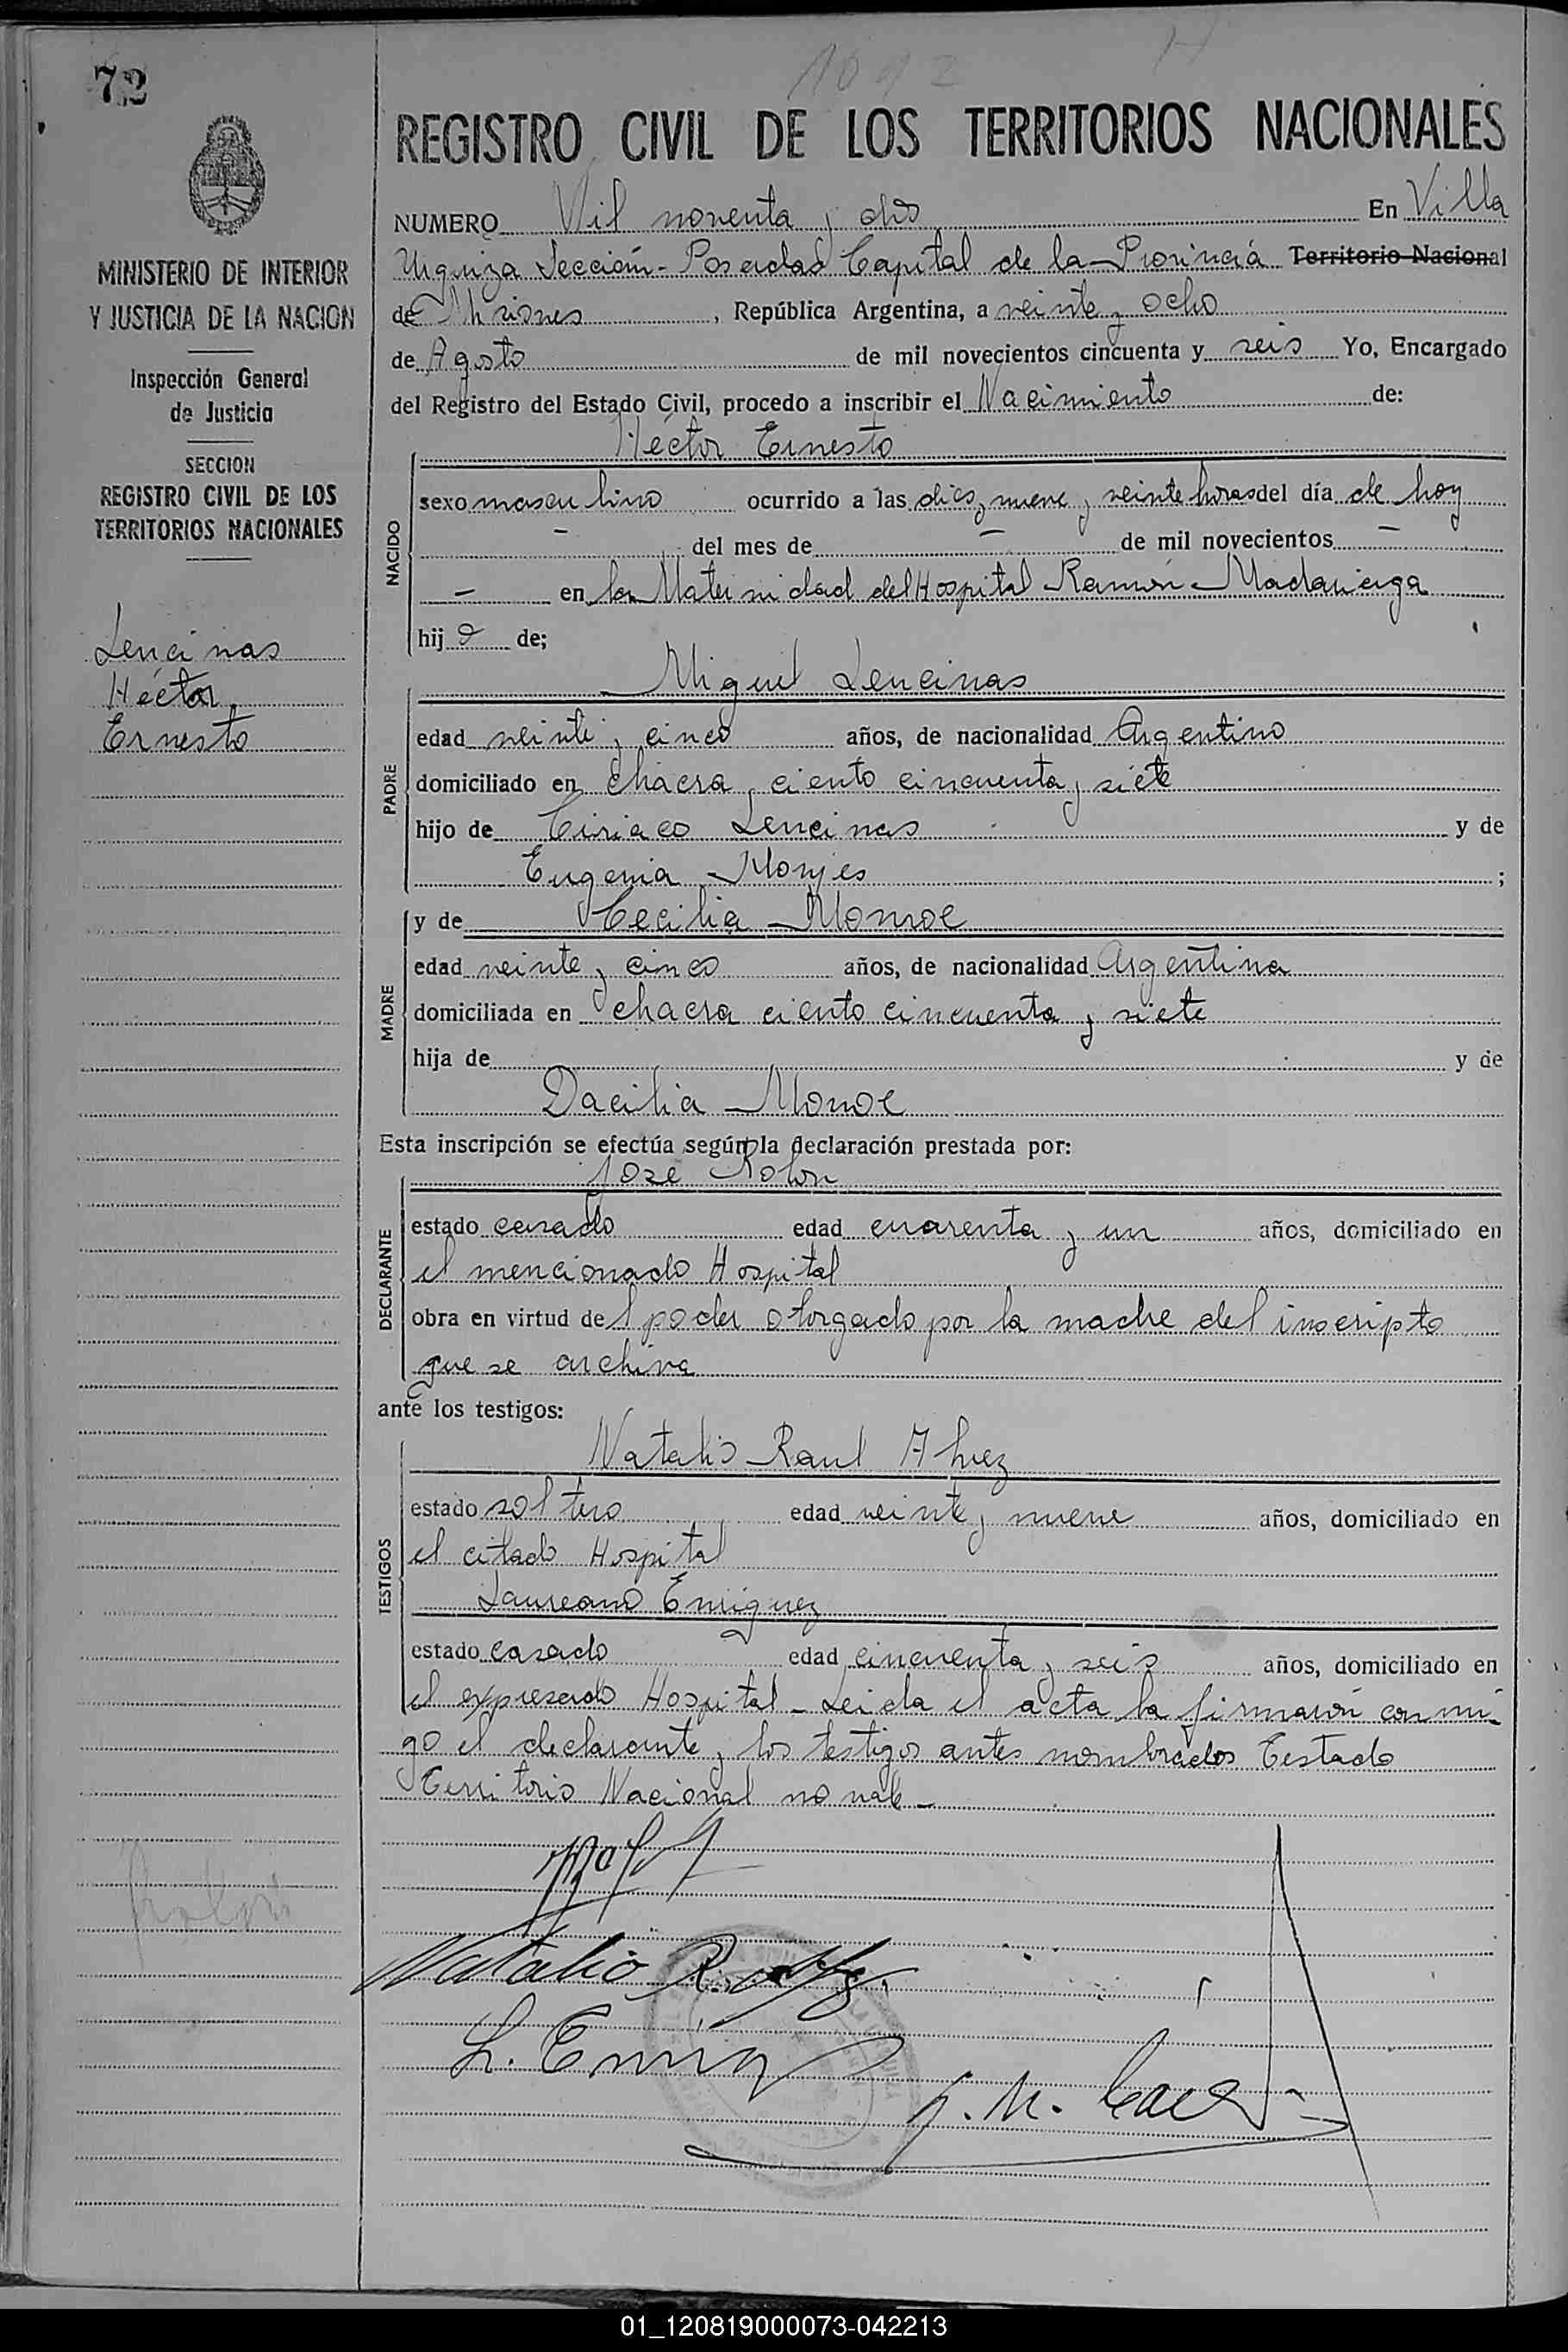 72
1092
REGISTRO CIVIL DE LOS TERRITORIOS NACIONALES
NUMERO Mil noventa y dos En Villa
Urquiza Sección - Posadas Capital de la Provincia Territorio Nacional
de Misiones, República Argentina, a veinte y ocho
de Agosto de mil novecientos cincuenta y seis Yo, Encargado
del Registro del Estado Civil, procedo a inscribir el Nacimiento de:
MINISTERIO DE INTERIOR
Y JUSTICIA DE LA NACION
Inspección General
de Justicia
SECCION
REGISTRO CIVIL DE LOS
TERRITORIOS NACIONALES
Lencinas
Héctor
Ernesto
NACIDO
Héctor Ernesto
sexo masculino ocurrido a las dies y nueve y veinte horas del día de hoy
— del mes de — de mil novecientos —
— en la Maternidad del Hospital Ramón Madariaga
hijo de;
PADRE
Miguel Lencinas
edad veinte y cinco años, de nacionalidad Argentino
domiciliado en chacra ciento cincuenta y siete
hijo de Ciriaco Lencinas y de
Eugenia Monjes ;
MADRE
y de Cecilia Monroe
edad veinte y cinco años, de nacionalidad Argentina
domiciliada en chacra ciento cincuenta y siete
hija de y de
Dacilia Monroe
Esta inscripción se efectúa según la declaración prestada por:
DECLARANTE
José Rolon
estado casado edad cuarenta y un años, domiciliado en
el mencionado Hospital
obra en virtud del poder otorgado por la madre del inscripto
que se archiva
ante los testigos:
TESTIGOS
Natalio Raul
estado soltero edad veinte y nueve años, domiciliado en
el citado Hospital
Laureano Enriquez
estado casado edad cincuenta y seis años, domiciliado en
el expresado Hospital - Leida el acta la firmaron conmi-
go el declarante y los testigos antes nombrados Testado
Territorio Nacional no vale -
Natalio R.
L. Enriq
01_120819000073-042213